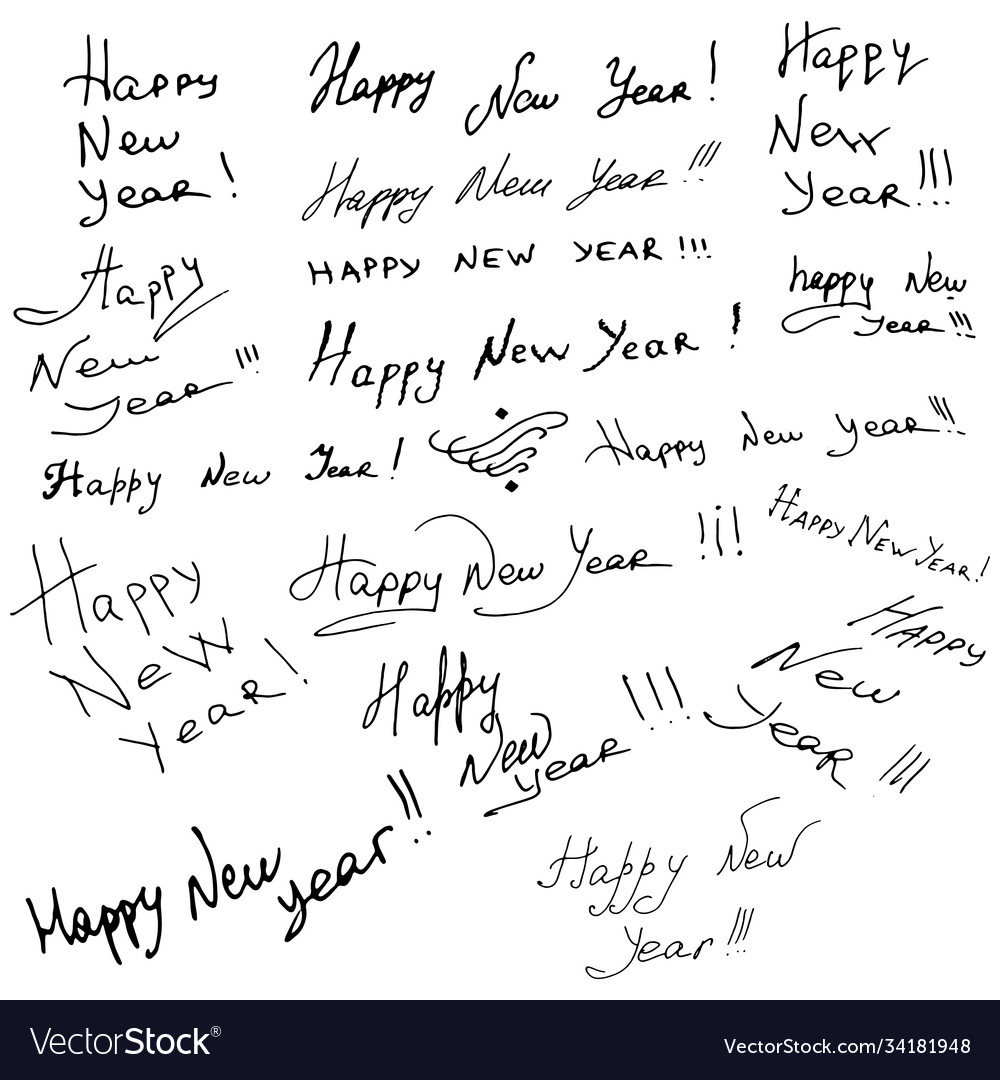 Happy
New
Year!
Happy New Year!
Happy
New
Year!!!
Happy New Year!!!
HAPPY NEW YEAR!!!
Happy
New
Year!!!
happy New
Year!!!
Happy New Year!
Happy New Year!
Happy New Year!!!
Happy
New
Year!
Happy New Year!i!
Happy New Year!
Happy
New
Year!!!
Happy
New
Year!!!
Happy New
year!!
Happy New
Year!!!
VectorStock®
VectorStock.com/34181948